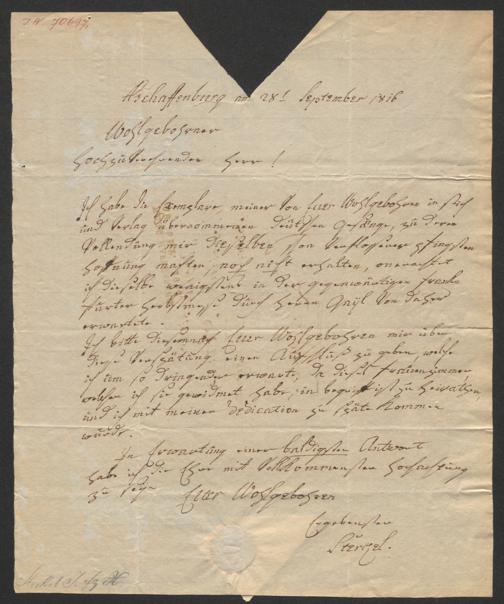 Aschaffenburg am 28t September 1816
Wohlgebohrner
Hochzuverehrender Herr!
Ich habe die Exemplare meiner von Euer Wohlgebohren in Stich
und Verlag übernommenen deutschen Gesänge, zu deren
Vollendung mir dieselben schon verflossene Pfingsten
Hoffnung machten, noch nicht erhalten, ohneracht
ich dieselbe wenigstens in der gegenwärtigen Frank-
furter Herbstmesse durch Herrn Gayl von daher
erwartete.
Ich bitte diesemnach Euer Wohlgebohren mir über
diese Verspätung einen Aufschluß zu geben, welche
ich um so dringender erwarte, da dieses Frauenzimmer
welchen ich sie gewidmet habe, im begriff ist zu heirathen,
und ich mit meiner Dedication zu späte kommen
würde.
In Erwartung einer baldigsten Antwort
habe ich die Ehre mit vollkommenster Hochachtung
zu seyn
Euer Wohlgebohren
Ergebenster
Sterkel.